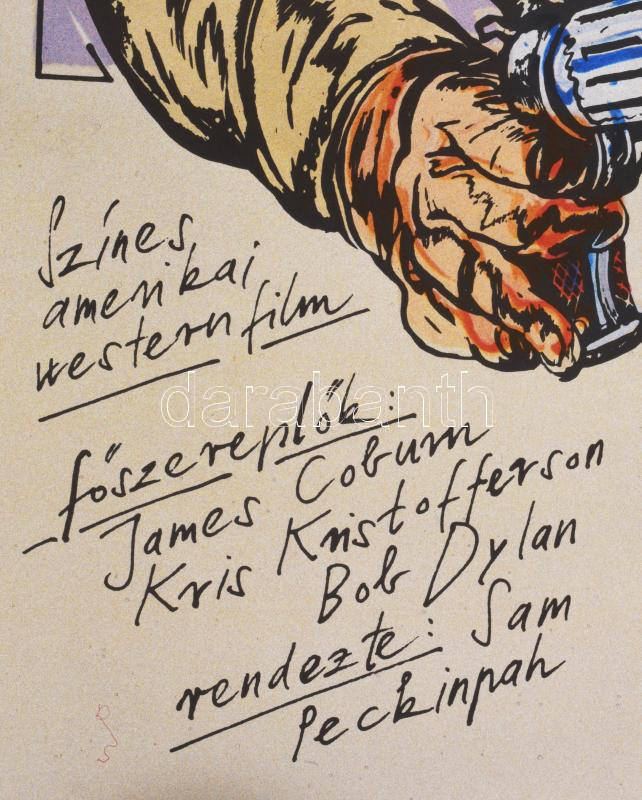 Színes
amerikai
westernfilm
főszereplők:
James Coburn
Kris Kristofferson
Bob Dylan
rendezte: Sam
Peckinpah
darabanth